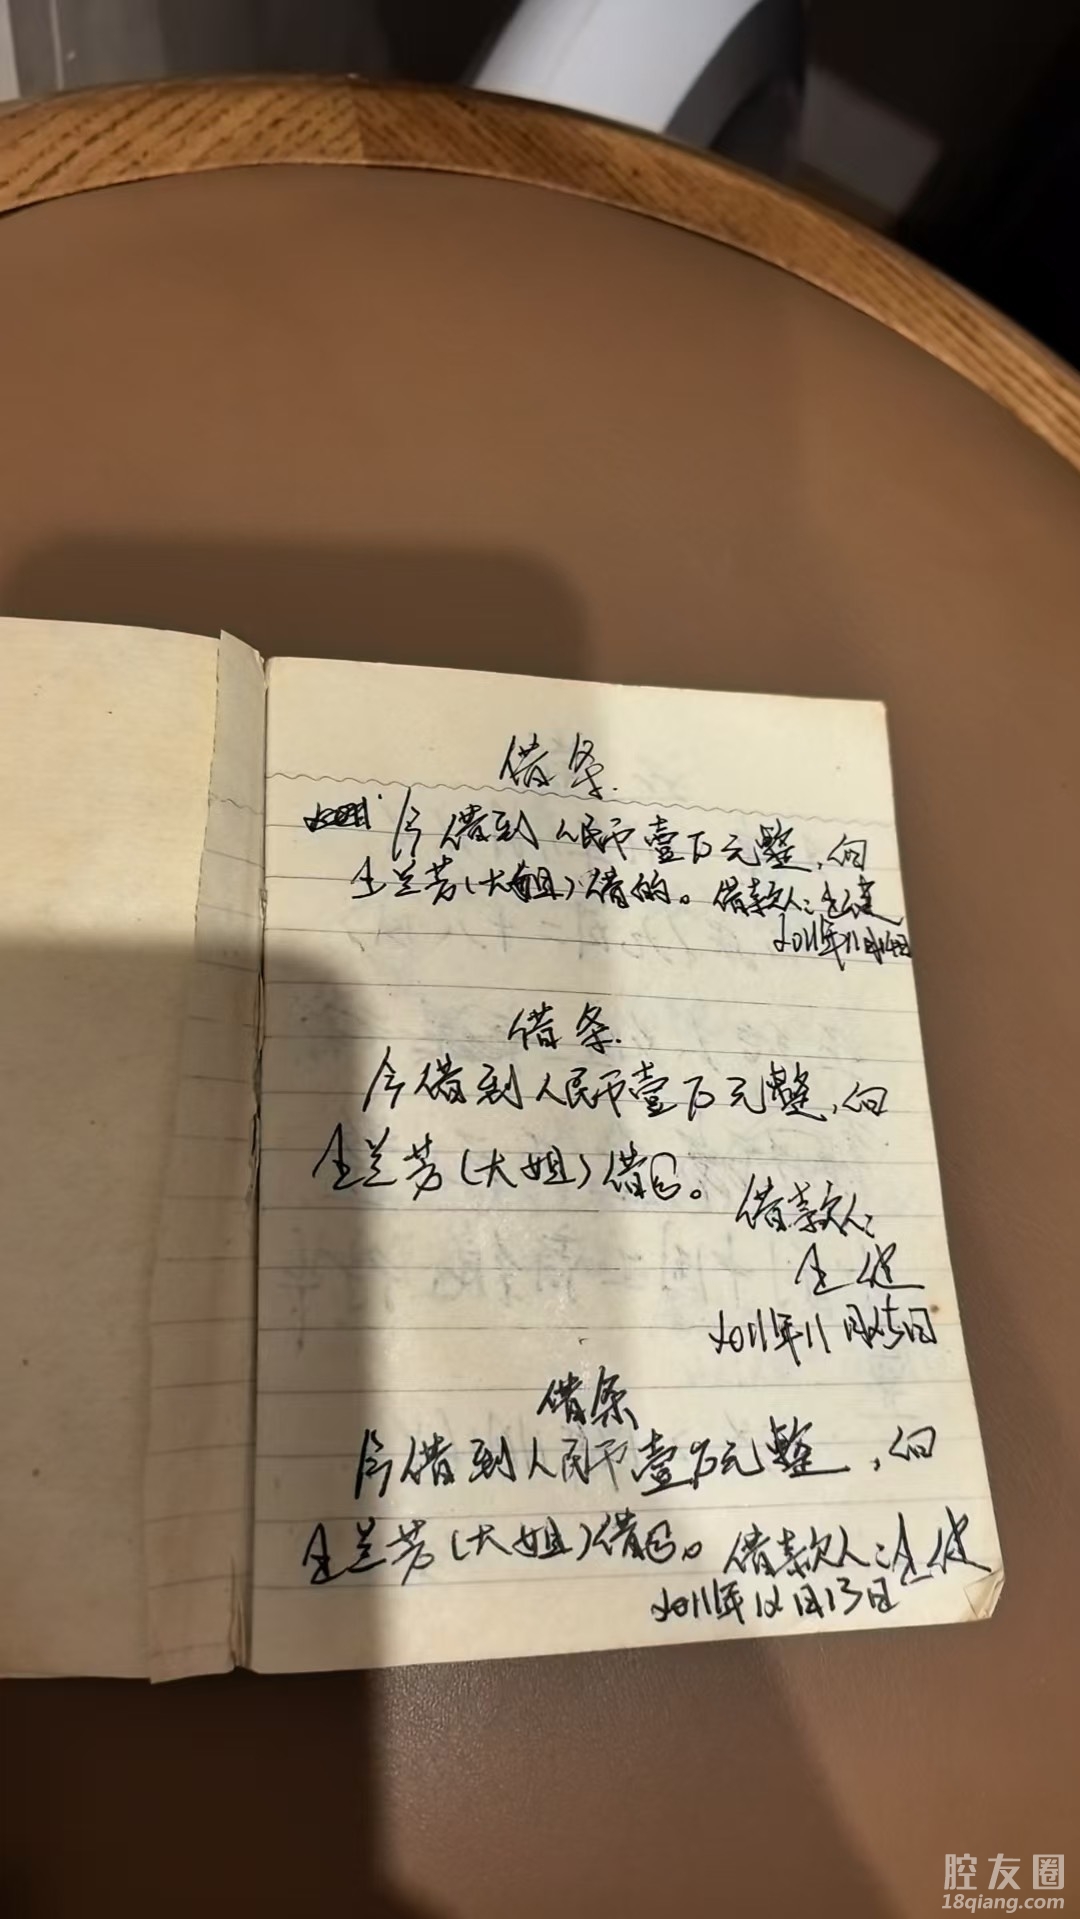 借条.
今借到人民币壹万元整,向
王兰芳(大姐)借的。借款人:王健
2011年11月14日
借条.
今借到人民币壹万元整,向
王兰芳(大姐)借的。
借款人:
王健
2011年11月25日
借条
今借到人民币壹万元整,向
王兰芳(大姐)借的。借款人:王健
2011年12月13日
腔友圈
18qiang.com